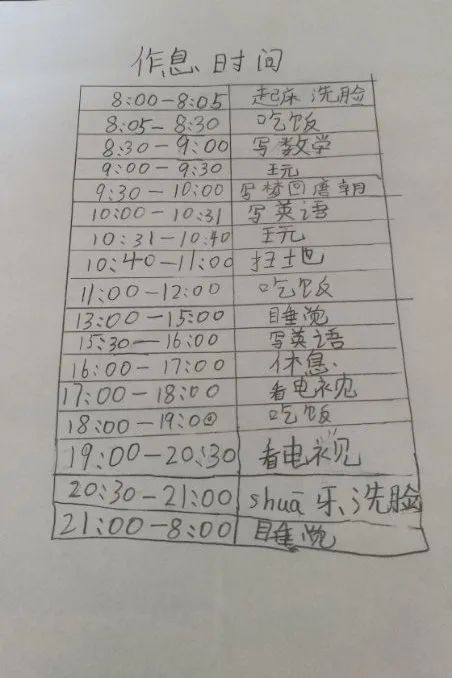 作息时间
8:00-8:05 起床洗脸
8:05-8:30 吃饭
8:30-9:00 写数学
9:00-9:30 玩
9:30-10:00 写梦回唐朝
10:00-10:31 写英语
10:31-10:40 玩
10:40-11:00 扫地
11:00-12:00 吃饭
13:00-15:00 睡觉
15:30-16:00 写英语
16:00-17:00 休息
17:00-18:00 看电视
18:00-19:00 吃饭
19:00-20:30 看电视
20:30-21:00 shuā乐洗脸
21:00-8:00 睡觉